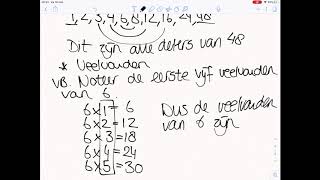 1, 2, 3, 4, 6, 8, 12, 16, 24, 48
Dit zijn alle delers van 48
* Veelvouden
VB. Noteer de eerste vijf veelvouden
van 6.
6 x 1 = 6
6 x 2 = 12
6 x 3 = 18
6 x 4 = 24
6 x 5 = 30
Dus de veelvouden
van 6 zijn